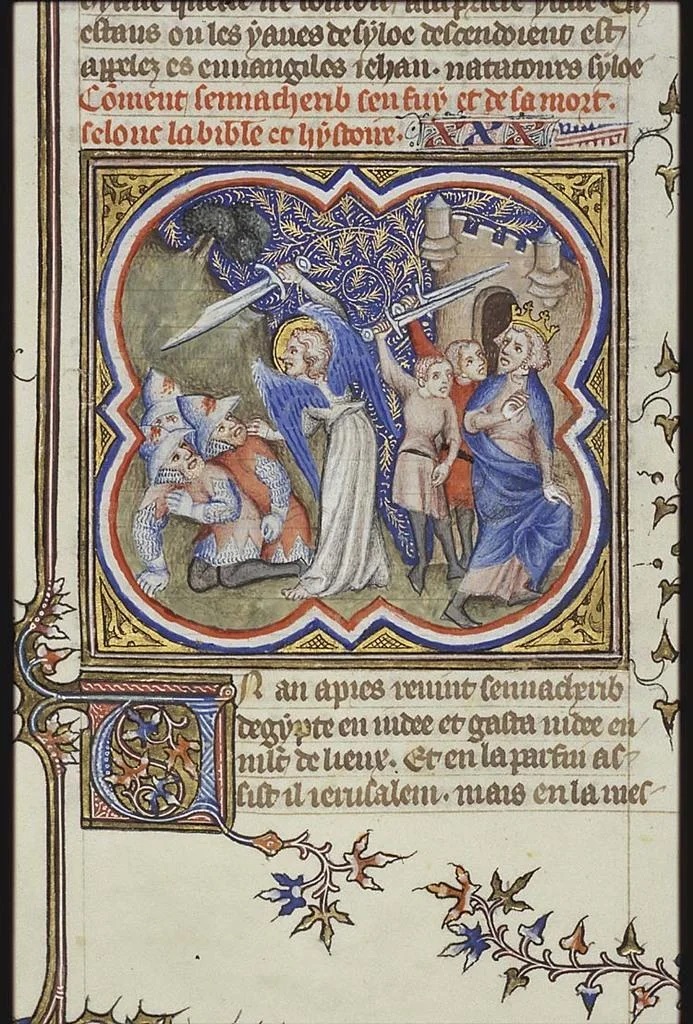 estaus ou les yaues de syloe descendoient est
appelez es euuangiles iehan. natatoures syloe
Coment sennacherib sen fuy et de sa mort.
selonc la bible et hystoire. XXX
Un an apres reuint sennacherib
degypte en iudee et gasta iudee en
mlt de lieux. Et en la parfin as
sist il ierusalem. mais en la mes